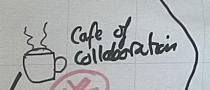 Cafe of
Collaboration